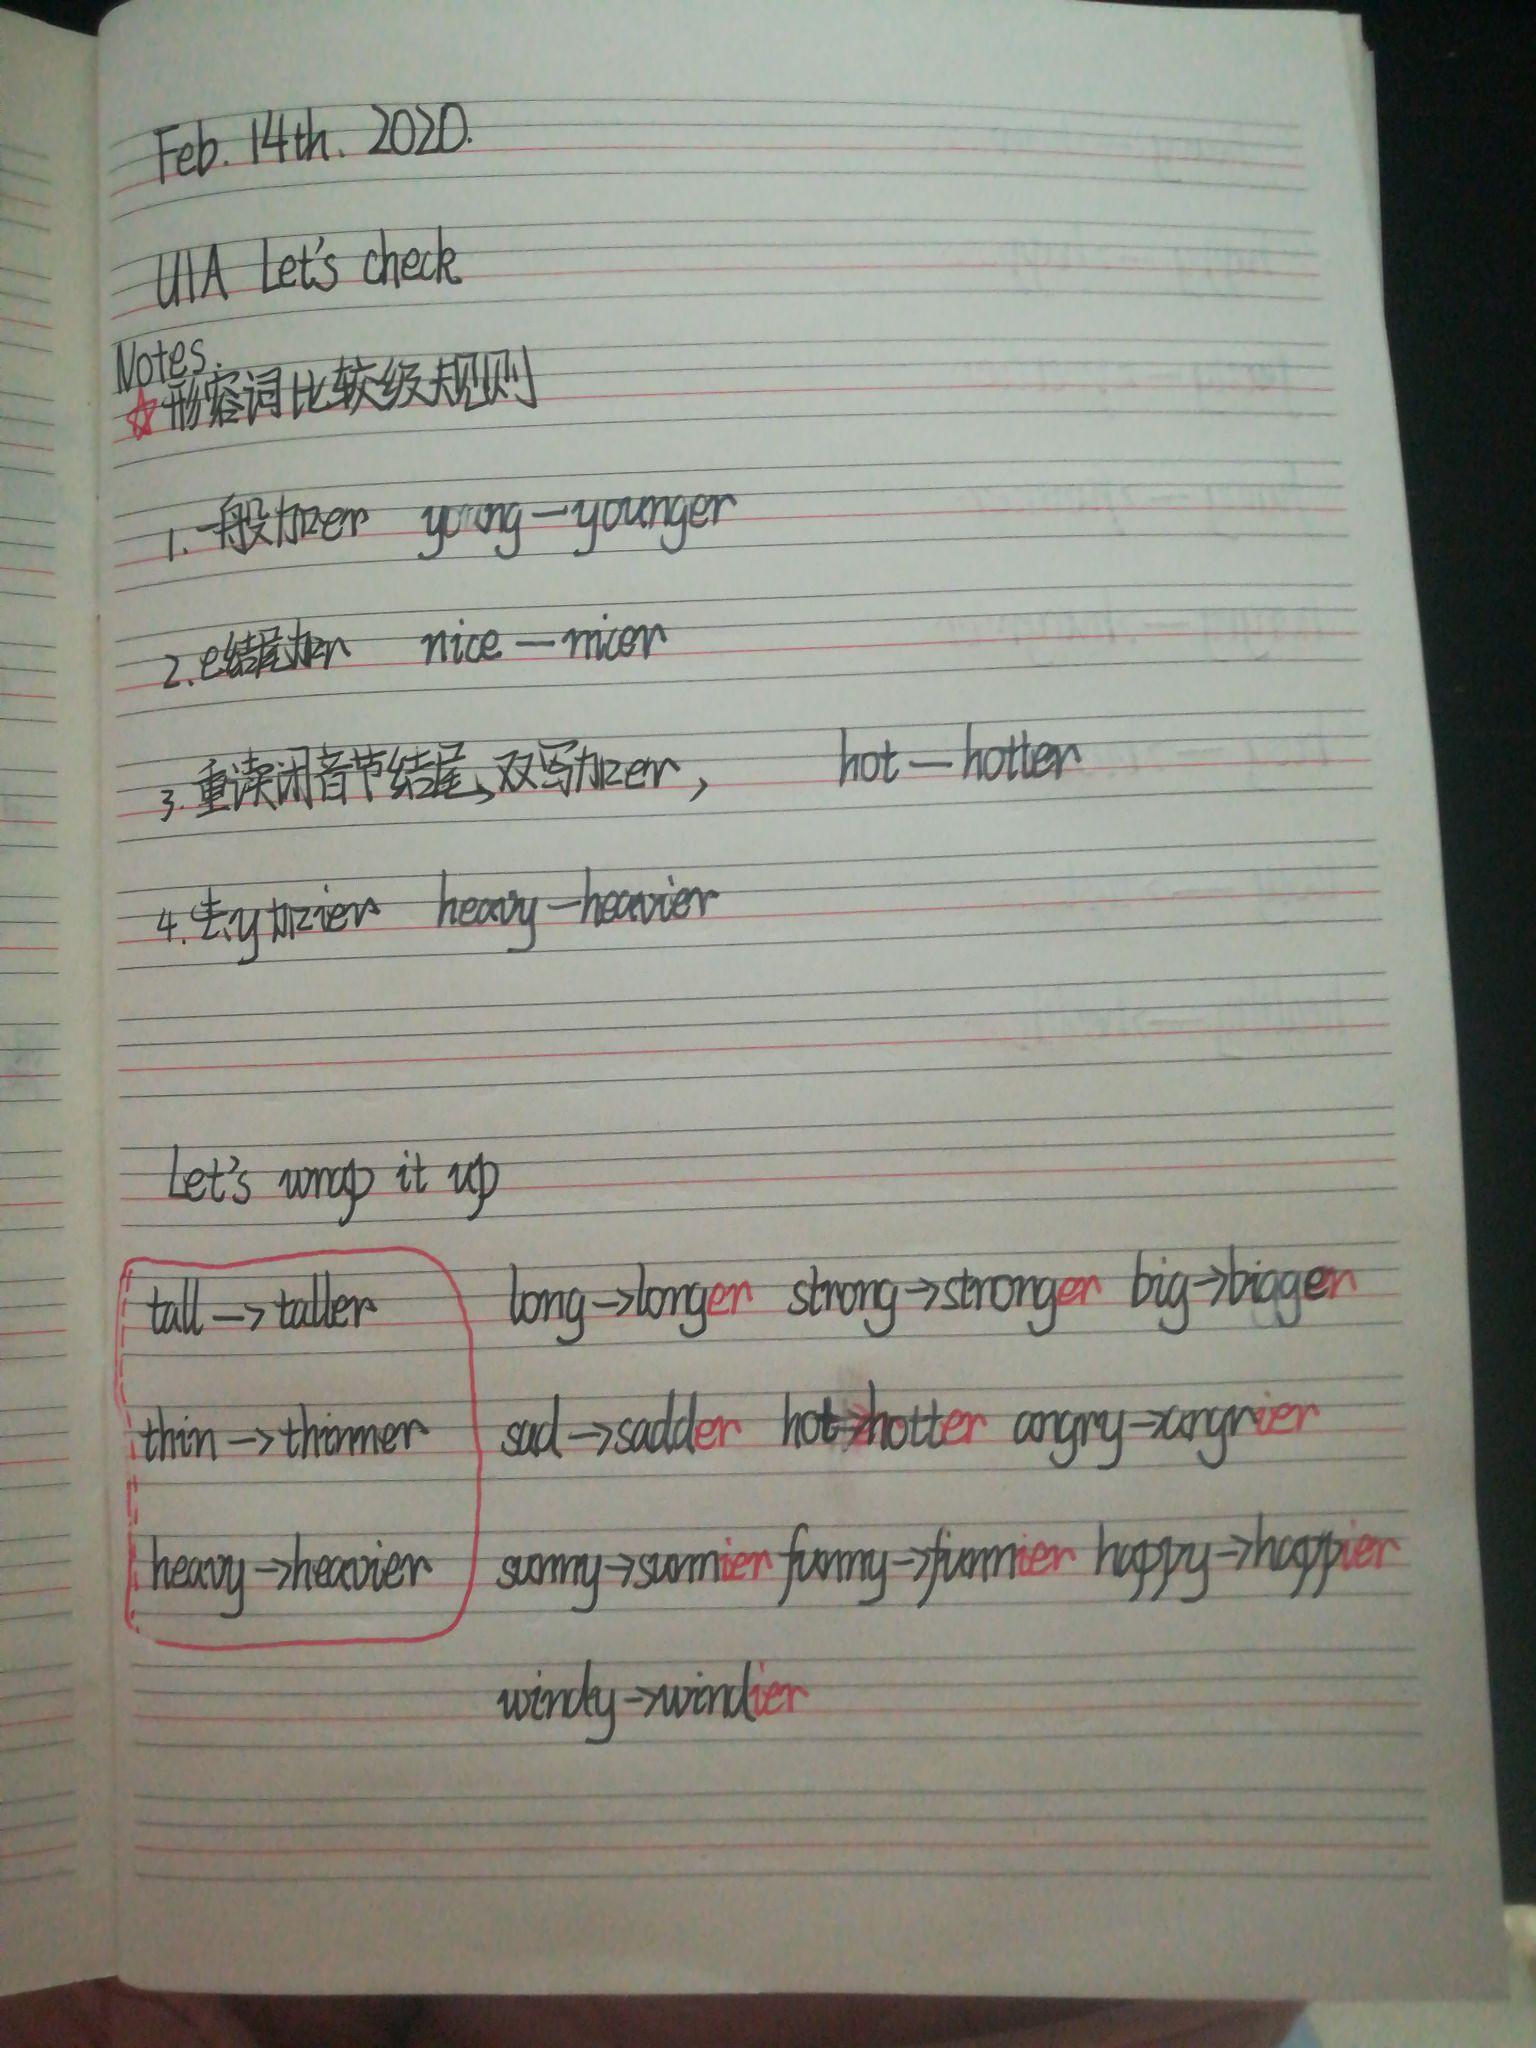 Feb. 14th. 2020.
U1A Let's check
Notes.
☆形容词比较级规则
1. 一般加er young—younger
2. e结尾加r nice—nicer
3. 重读闭音节结尾、双写加er, hot—hotter
4. 去y加ier heavy—heavier
Let's wrap it up
tall→taller long→longer strong→stronger big→bigger
thin→thinner sad→sadder hot→hotter angry→angrier
heavy→heavier sunny→sunnier funny→funnier happy→happier
windy→windier